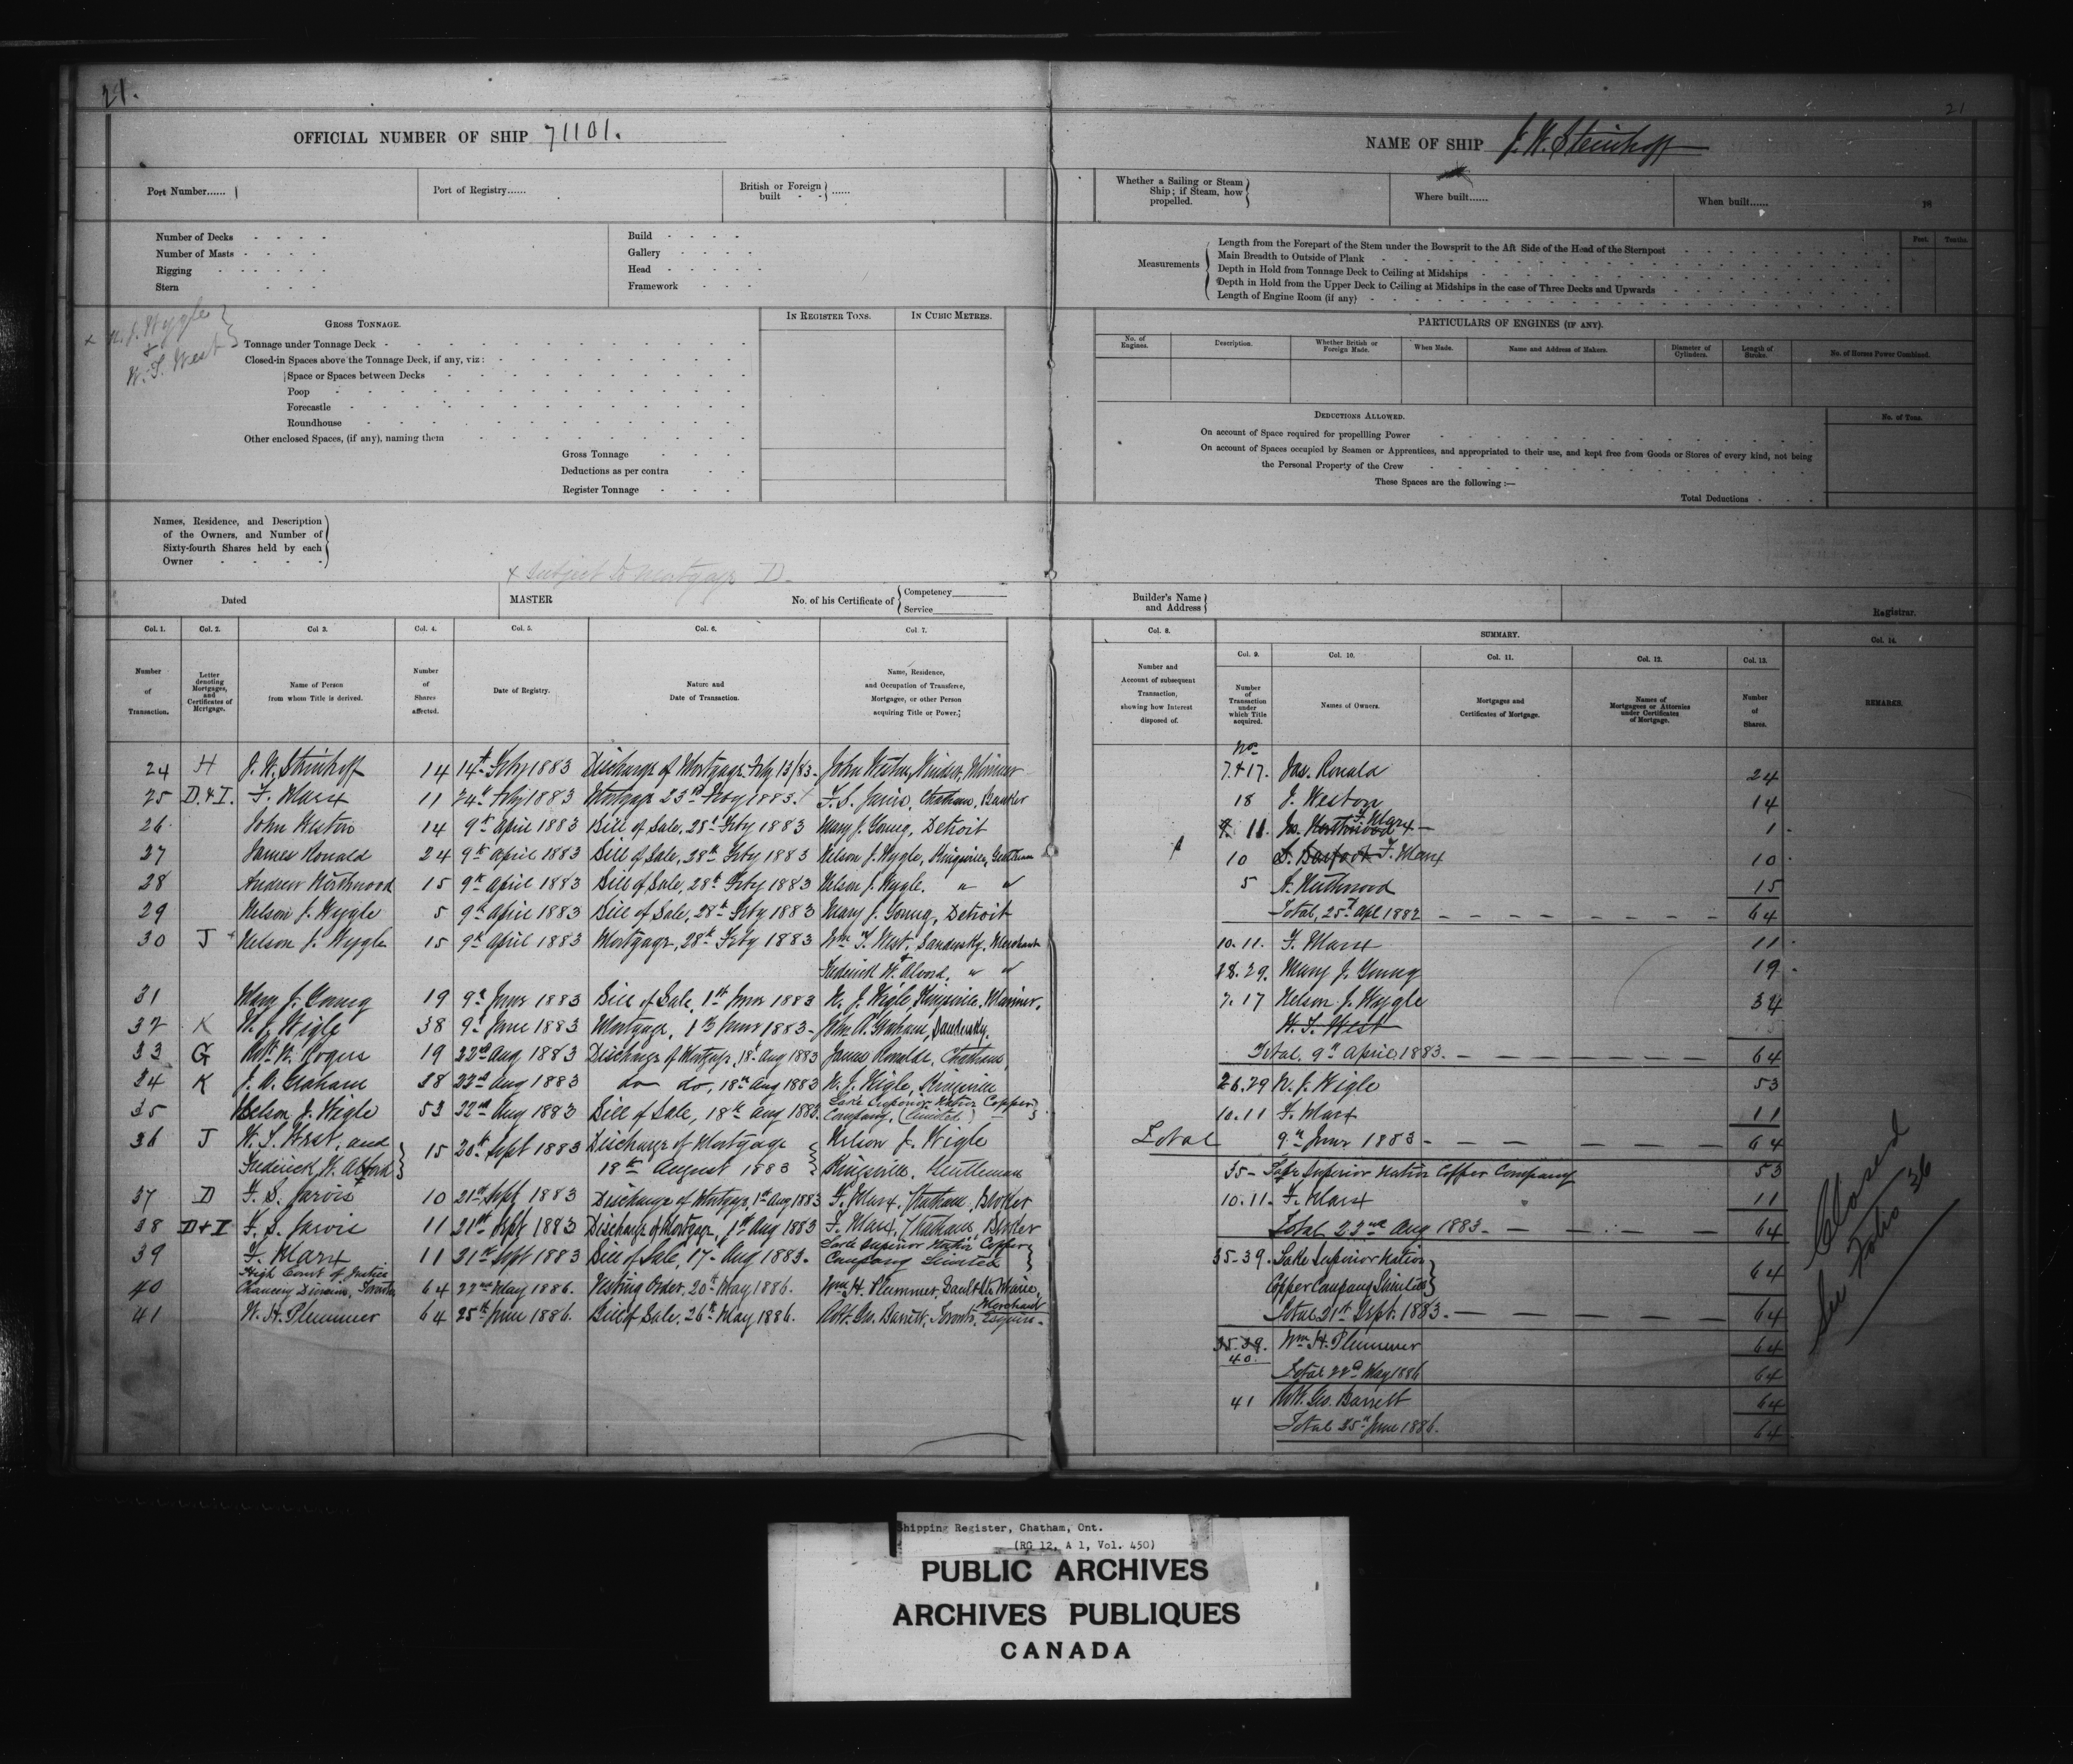 21.
21
OFFICIAL NUMBER OF SHIP 71101.
NAME OF SHIP J. W. Steinhoff
Port Number......
Port of Registry......
British or Foreign built - - ......
Whether a Sailing or Steam Ship; if Steam, how propelled.
Where built......
When built...... 18
Number of Decks
Number of Masts
Rigging
Stern
Build
Gallery
Head
Framework
Measurements
Length from the Forepart of the Stem under the Bowsprit to the Aft Side of the Head of the Sternpost
Main Breadth to Outside of Plank
Depth in Hold from Tonnage Deck to Ceiling at Midships
Depth in Hold from the Upper Deck to Ceiling at Midships in the case of Three Decks and Upwards
Length of Engine Room (if any)
Feet. Tenths.
x N. J. Wygle
+
W. T. West
GROSS TONNAGE.
IN REGISTER TONS. IN CUBIC METRES.
Tonnage under Tonnage Deck
Closed-in Spaces above the Tonnage Deck, if any, viz:
Space or Spaces between Decks
Poop
Forecastle
Roundhouse
Other enclosed Spaces, (if any), naming them
Gross Tonnage
Deductions as per contra
Register Tonnage
PARTICULARS OF ENGINES (IF ANY).
No. of Engines. Description. Whether British or Foreign Made. When Made. Name and Address of Makers. Diameter of Cylinders. Length of Stroke. No. of Horses Power Combined.
DEDUCTIONS ALLOWED. No. of Tons.
On account of Space required for propellling Power
On account of Spaces occupied by Seamen or Apprentices, and appropriated to their use, and kept free from Goods or Stores of every kind, not being
the Personal Property of the Crew
These Spaces are the following :—
Total Deductions
Names, Residence, and Description
of the Owners, and Number of
Sixty-fourth Shares held by each
Owner
x Subject to Mortgage D.
Dated
MASTER
No. of his Certificate of Competency Service
Builder's Name and Address
Registrar.
Col. 1. Col. 2. Col 3. Col. 4. Col. 5. Col. 6. Col. 7.
Number of Transaction. Letter denoting Mortgages, and Certificates of Mortgage. Name of Person from whom Title is derived. Number of Shares affected. Date of Registry. Nature and Date of Transaction. Name, Residence, and Occupation of Transferee, Mortgagee, or other Person acquiring Title or Power.
24 H J. W. Steinhoff 14 14th Feby 1883 Discharge of Mortgage Feby 13/83. John Weston, Windsor, Mariner
25 D. & I. F. Marx 11 24th Feby 1883 Mortgage 23rd Feby 1883. F. S. Jarvis, Chatham, Banker
26 John Weston 14 9th April 1883 Bill of Sale, 28th Feby 1883 Mary J. Young, Detroit
27 James Ronald 24 9th April 1883 Bill of Sale, 28th Feby 1883 Nelson J. Wygle, Kingsville, Gentleman
28 Andrew Northwood 15 9th April 1883 Bill of Sale, 28th Feby 1883 Nelson J. Wygle. " "
29 Nelson J. Wygle 5 9th April 1883 Bill of Sale, 28th Feby 1883 Mary J. Young, Detroit
30 J Nelson J. Wygle 15 9th April 1883 Mortgage, 28th Feby 1883 Wm T. West, Sandusky, Merchant
Frederick W. Alvord, " "
31 Mary J. Young 19 9th June 1883 Bill of Sale, 1st June 1883 N. J. Wigle, Kingsville, Mariner.
32 K N. J. Wigle 38 9th June 1883 Mortgage, 1st June 1883 - John A. Graham, Sandusky.
33 G Robt. W. Rogers 19 22nd Aug 1883 Discharge of Mortgage, 18th Aug 1883 James Ronalds, Chatham,
34 K J. A. Graham 38 22nd Aug 1883 do do, 18th Aug 1883 N. J. Wigle, Kingsville
35 Nelson J. Wigle 53 22nd Aug 1883 Bill of Sale, 18th Aug 1883. Lake Superior Native Copper
Company, (Limited.)
36 J W. T. West, and 15 20th Sept 1883 Discharge of Mortgage Nelson J. Wigle
Frederick W. Alford 18th August 1883 Kingsville, Gentleman
37 D F. S. Jarvis 10 21st Sept 1883 Discharge of Mortgage, 1st Aug 1883 F. Marx, Chatham, Broker
38 D & I F. S. Jarvis 11 21st Sept 1883 Discharge of Mortgage, 1st Aug 1883 F. Marx, Chatham, Broker
39 F. Marx 11 21st Sept 1883 Bill of Sale, 17th Aug 1883. Lake Superior Native Copper
Company Limited
High Court of Justice
40 Chancery Division, Toronto 64 22nd May 1886. Vesting Order, 20th May 1886. Wm H. Plummer, Sault Ste Marie,
Merchant
41 W. H. Plummer 64 25th June 1886. Bill of Sale. 26th May 1886. Robt. Geo. Barrett, Toronto, Esquire.
Col. 8. SUMMARY. Col. 14.
Col. 9. Col. 10. Col. 11. Col. 12. Col. 13.
Number and Account of subsequent Transaction, showing how Interest disposed of. Number of Transaction under which Title acquired. Names of Owners. Mortgages and Certificates of Mortgage. Names of Mortgagees or Attornies under Certificates of Mortgage. Number of Shares. REMARKS.
Nos
7.+17. Jas. Ronald 24
18 J. Weston 14
9. 11. Jos. Northwood F. Marx 1
10 S. Barfoot F. Marx 10
5 A. Northwood 15
Total, 25th Apl 1882 64
10. 11. F. Marx 11
28. 29. Mary J. Young 19
7. 17 Nelson J. Wygle 34
W. T. West
Total, 9th April 1883. 64
26.29 N. J. Wigle 53
10.11 F. Marx 11
Total 9th June 1883 - 64
35 - Lake Superior Native Copper Company 53
10.11. F. Marx 11
Total 22nd Aug 1883 - 64
35-39. Lake Superior Native
Copper Company Limited 64
Total 21st Sept. 1883. 64
35-39. Wm H. Plummer 64
40.
Total 22nd May 1886 64
41 Robt. Geo. Barrett 64
Total 25th June 1886. 64
Closed
See Folio 36
Shipping Register, Chatham, Ont.
(RG 12, A 1, Vol. 450)
PUBLIC ARCHIVES
ARCHIVES PUBLIQUES
CANADA